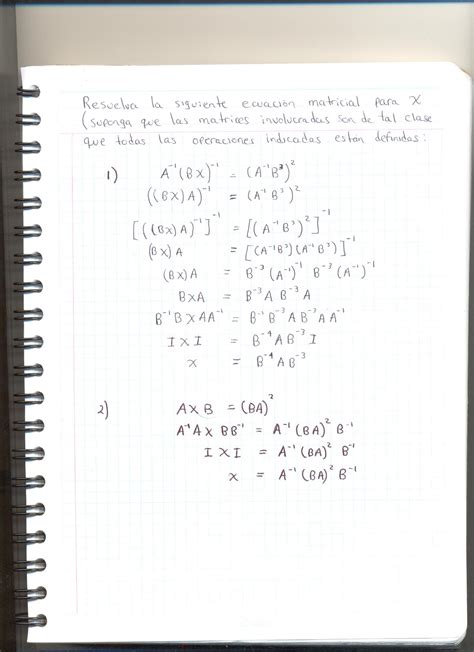 Resuelva la siguiente ecuación matricial para X
(suponga que las matrices involucradas son de tal clase
que todas las operaciones indicadas estan definidas:
1) A⁻¹(BX)⁻¹ = (A⁻¹B³)²
((BX)A)⁻¹ = (A⁻¹B³)²
[((BX)A)⁻¹]⁻¹ = [(A⁻¹B³)²]⁻¹
(BX)A = [(A⁻¹B³)(A⁻¹B³)]⁻¹
(BX)A = B⁻³(A⁻¹)⁻¹ B⁻³(A⁻¹)⁻¹
BXA = B⁻³A B⁻³A
B⁻¹BXAA⁻¹ = B⁻¹B⁻³AB⁻³AA⁻¹
IXI = B⁻⁴AB⁻³I
x = B⁻⁴AB⁻³
2) AXB = (BA)²
A⁻¹AXBB⁻¹ = A⁻¹(BA)²B⁻¹
IXI = A⁻¹(BA)²B⁻¹
x = A⁻¹(BA)²B⁻¹